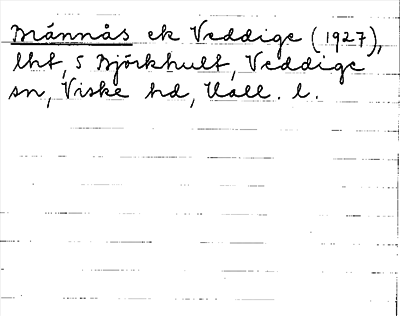 Männås ek Veddige (1927),
lht, S Björkhult, Veddige
sn, Viske hd, Hall. l.